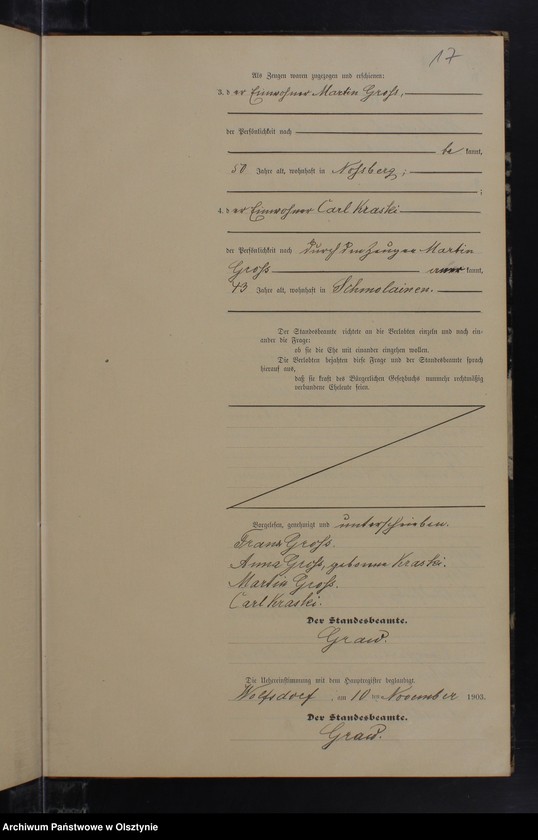 17
Als Zeugen waren zugezogen und erschienen:
3. der Einwohner Martin Groß,
der Persönlichkeit nach
be kannt,
50 Jahre alt, wohnhaft in Noßberg;
;
4. der Einwohner Carl Kraski
der Persönlichkeit nach durch den Zeugen Martin
Groß kannt,
43 Jahre alt, wohnhaft in Schmolainen.
Der Standesbeamte richtete an die Verlobten einzeln und nach ein-
ander die Frage:
ob sie die Ehe mit einander eingehen wollen.
Die Verlobten bejahten diese Frage und der Standesbeamte sprach
hierauf aus,
daß sie kraft des Bürgerlichen Gesetzbuchs nunmehr rechtmäßig
verbundene Eheleute seien.
Vorgelesen, genehmigt und unterschrieben.
Franz Groß.
Anna Groß, geborene Kraski.
Martin Groß.
Carl Kraski.
Der Standesbeamte.
Graw.
Die Uebereinstimmung mit dem Hauptregister beglaubigt.
Wolfsdorf, am 10 ten November 1903.
Der Standesbeamte.
Graw.
Archiwum Państwowe w Olsztynie